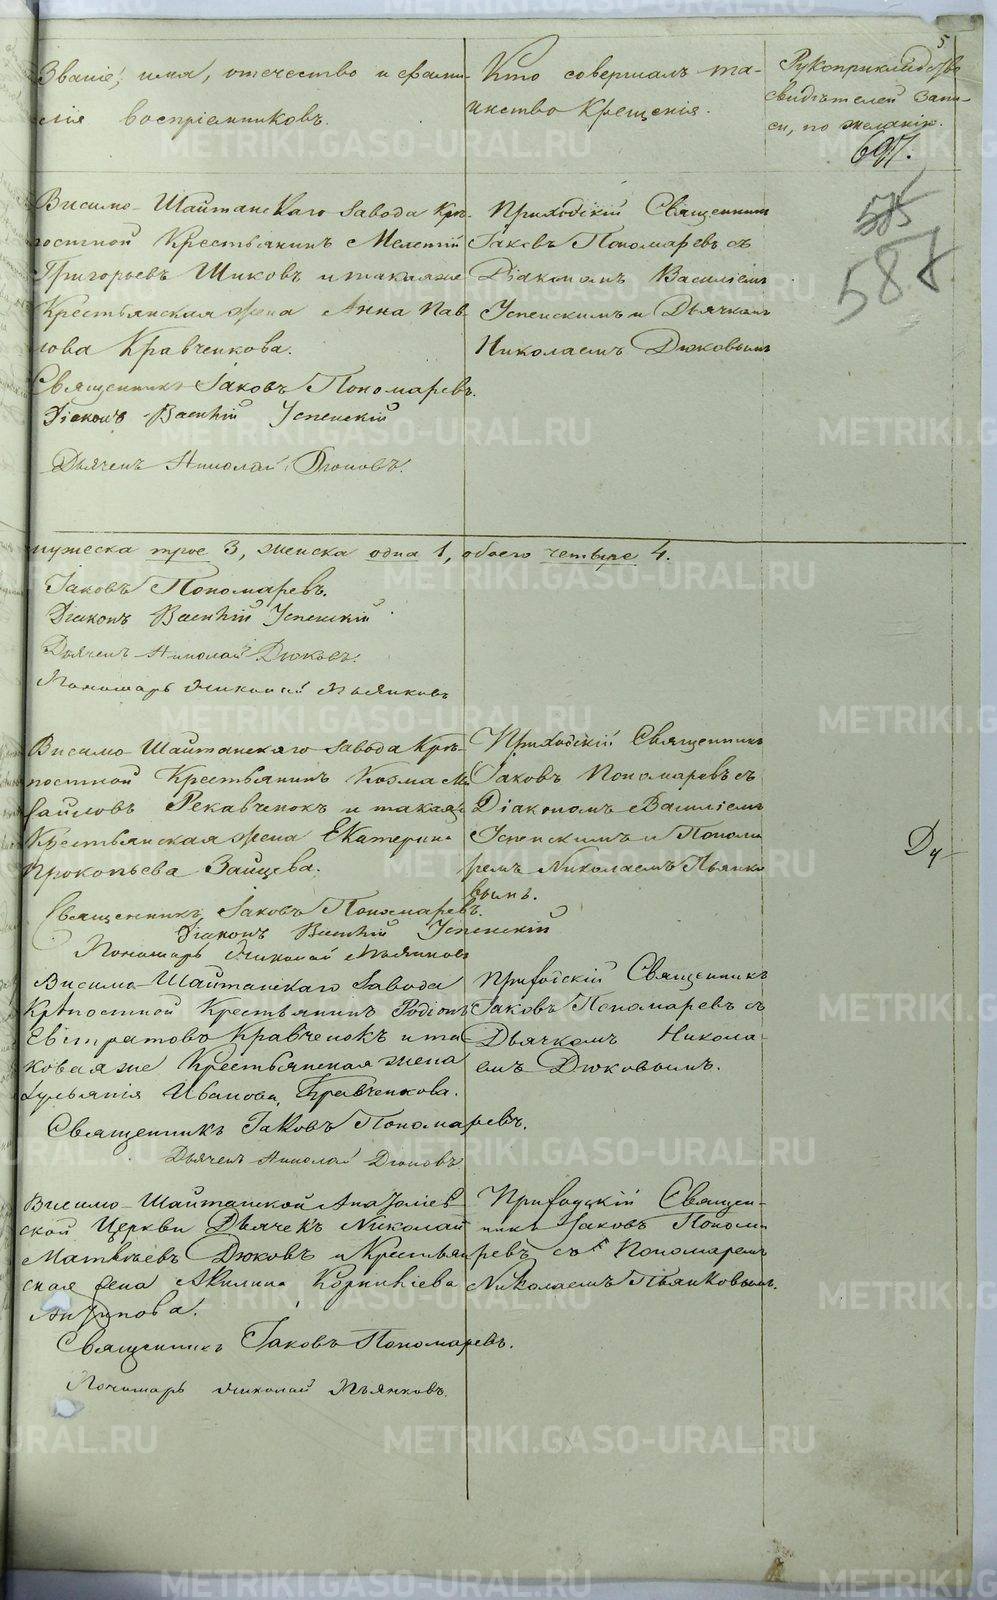 5
Званіе, имя, отечество и фами-
лія воспріемниковъ.
Кто совершалъ та-
инство Крещенія.
Рукоприкладство
свидѣтелей запи-
си, по желанію.
697.
585
587
Висимо-Шайтанскаго завода Крѣ-
постной Крестьянинъ Мелетій
Григорьевъ Шиковъ и такаяже
Крестьянская жена Анна Пав
лова Кравченкова.
Священникъ Іаковъ Пономаревъ.
Діаконъ Василій Успенскій
Дьячекъ Николай Дюковъ.
Приходскій Священникъ
Іаковъ Пономаревъ съ
Діакономъ Василіемъ
Успенскимъ и Дьячкомъ
Николаемъ Дюковымъ
мужеска трое 3, женска одна 1, обоего четыре 4.
Іаковъ Пономаревъ.
Діаконъ Василій Успенскій
Дьячекъ Николай Дюковъ.
Пономарь Николай Пьянковъ
Висимо-Шайтанскаго завода Крѣ-
постной Крестьянинъ Козма Ми
хайловъ Рекавченокъ и такаяж
Крестьянская жена Екатерина
Прокопьева Зайцева.
Священникъ Іаковъ Пономаревъ.
Діаконъ Василій Успенскій
Пономарь Николай Пьянковъ
Приходскій Священникъ
Іаковъ Пономаревъ съ
Діакономъ Василіемъ
Успенскимъ и Понома
ремъ Николаемъ Пьянко
вымъ.
Висимо-Шайтанскаго Завода
Крѣпостной Крестьянинъ Родіонъ
Евстратовъ Кравченокъ и та
коваяже Крестьянская жена
Іуліанія Иванова Кравченкова.
Священникъ Іаковъ Пономаревъ.
Дьячекъ Николай Дюковъ
Приходскій Священникъ
Іаковъ Пономаревъ съ
Дьячкомъ Никола-
емъ Дюковымъ.
Висимо-Шайтанской Анатоліев
ской Церкви Дьячекъ Николай
Матвѣевъ Дюковъ и Крестьян
ская жена Акилина Корнилiева
Антипова.
Священникъ Іаковъ Пономаревъ.
Пономарь Николай Пьянковъ.
Приходскій Священ-
никъ Іаковъ Понома
ревъ съ Пономаремъ
Николаемъ Пьянковымъ.
METRIKI.GASO-URAL.RU